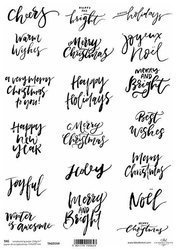 Cheers
MERRY
AND
bright
happy
holidays
Warm
Wishes
Merry
Christmas
Joyeux
Noël
a very merry
Christmas
to you!
Happy
Holidays
MERRY
AND
Bright
Happy
New
Year
Merry
Christmas
Best
Wishes
Joyful
Merry
and
Bright
Noël
Winter
is awesome
Merry
Christmas